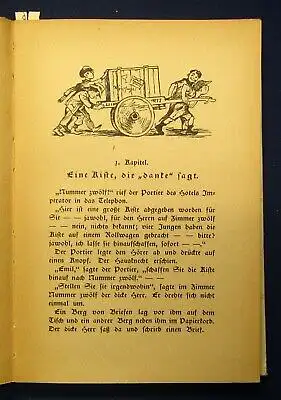 1. Kapitel.
Eine Kiste, die „danke“ sagt.
„Nummer zwölf!“ rief der Portier des Hotels Im-
perator in das Telephon.
„Hier ist eine große Kiste abgegeben worden für
Sie — — jawohl, für den Herrn auf Zimmer zwölf
— — nein, nichts bekannt; vier Jungen haben die
Kiste auf einem Rollwagen gebracht — — bitte?
jawohl, ich lasse sie hinaufschaffen, sofort — —.“
Der Portier legte den Hörer ab und drückte auf
einen Knopf. Der Hausknecht erschien.
„Emil,“ sagte der Portier, „schaffen Sie die Kiste
hinauf nach Nummer zwölf.“ —
„Stellen Sie sie irgendwohin“, sagte im Zimmer
Nummer zwölf der dicke Herr. Er drehte sich nicht
einmal um.
Ein Berg von Briefen lag vor ihm auf dem
Tisch und ein andrer Berg neben ihm im Papierkorb.
Der dicke Herr saß da und schrieb einen Brief.